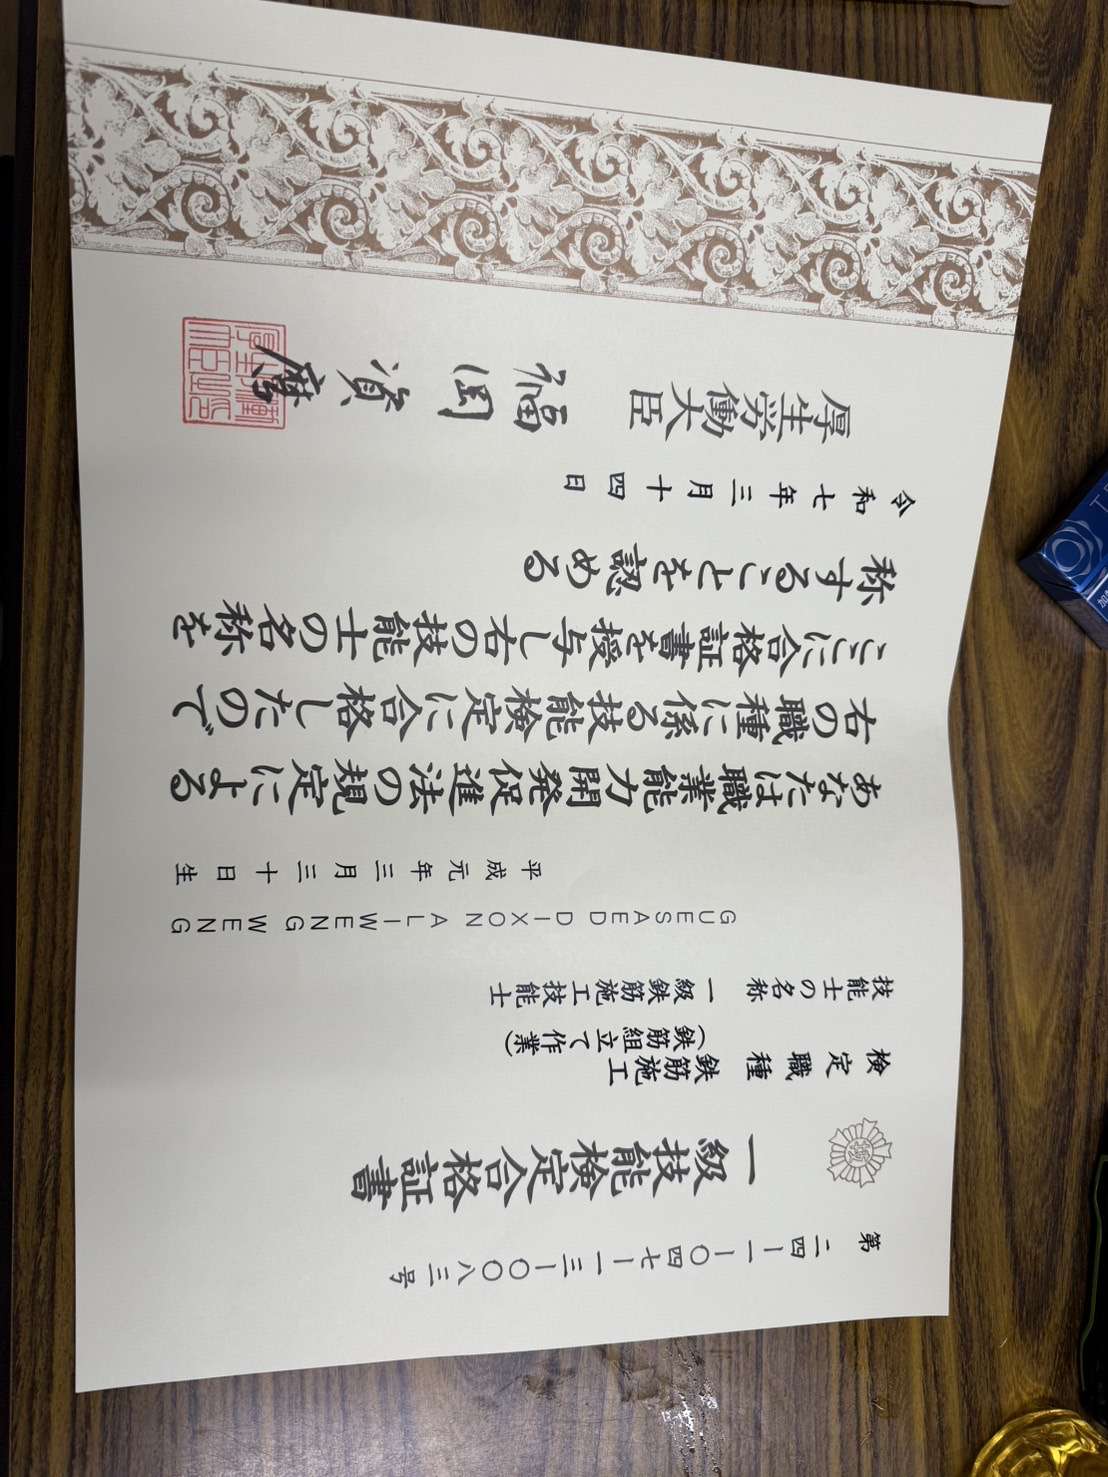 第 二四―一―〇四七―一三―〇〇八三号
一級技能検定合格証書
検定職種 鉄筋施工
(鉄筋組立て作業)
技能士の名称 一級鉄筋施工技能士
GUESAED DIXON ALIWENG WENG
平成元年三月三十日生
あなたは職業能力開発促進法の規定による
右の職種に係る技能検定に合格したので
ここに合格証書を授与し右の技能士の名称を
称することを認める
令和七年三月十四日
厚生労働大臣 福岡資麿